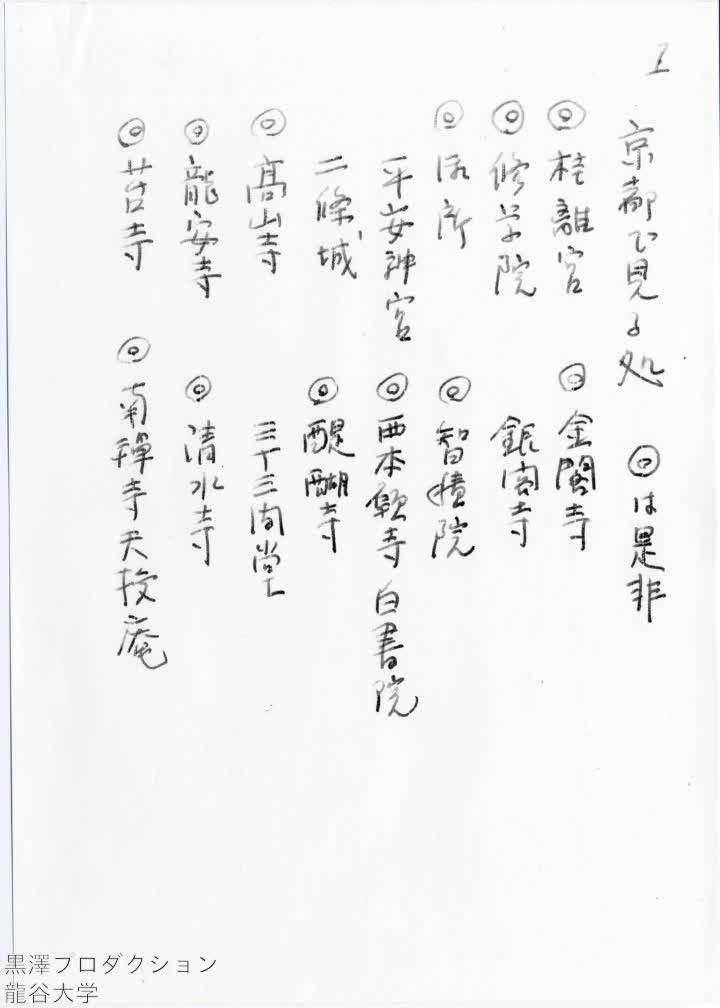 1
京都で見る処　◎は是非
◎桂離宮
◎修学院
◎御所
平安神宮
二條城
◎高山寺
◎龍安寺
◎苔寺
◎金閣寺
銀閣寺
◎智積院
◎西本願寺 白書院
◎醍醐寺
三十三間堂
◎清水寺
◎南禅寺天授庵
黒澤プロダクション
龍谷大学